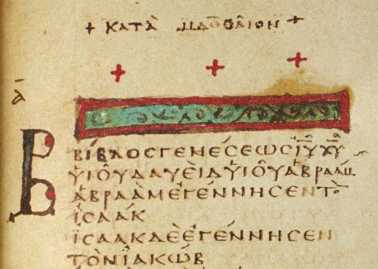 + ΚΑΤᾺ ΜΑΘΘΑῖΟΝ +
Α
ΒΙΒΛΟΣ ΓΕΝΕΣΕΩΣ ΙΥ ΧΥ
ΥΙΟΥ ΔΑΥΕΙΔ ΥΙΟΥ ΑΒΡΑΑΜ
ΑΒΡΑΑΜ ΕΓΕΝΝΗΣΕΝ ΤΟΝ
ΙΣΑΑΚ
ΙΣΑΑΚ ΔΕ ΕΓΕΝΝΗΣΕΝ
ΤΟΝ ΙΑΚΩΒ